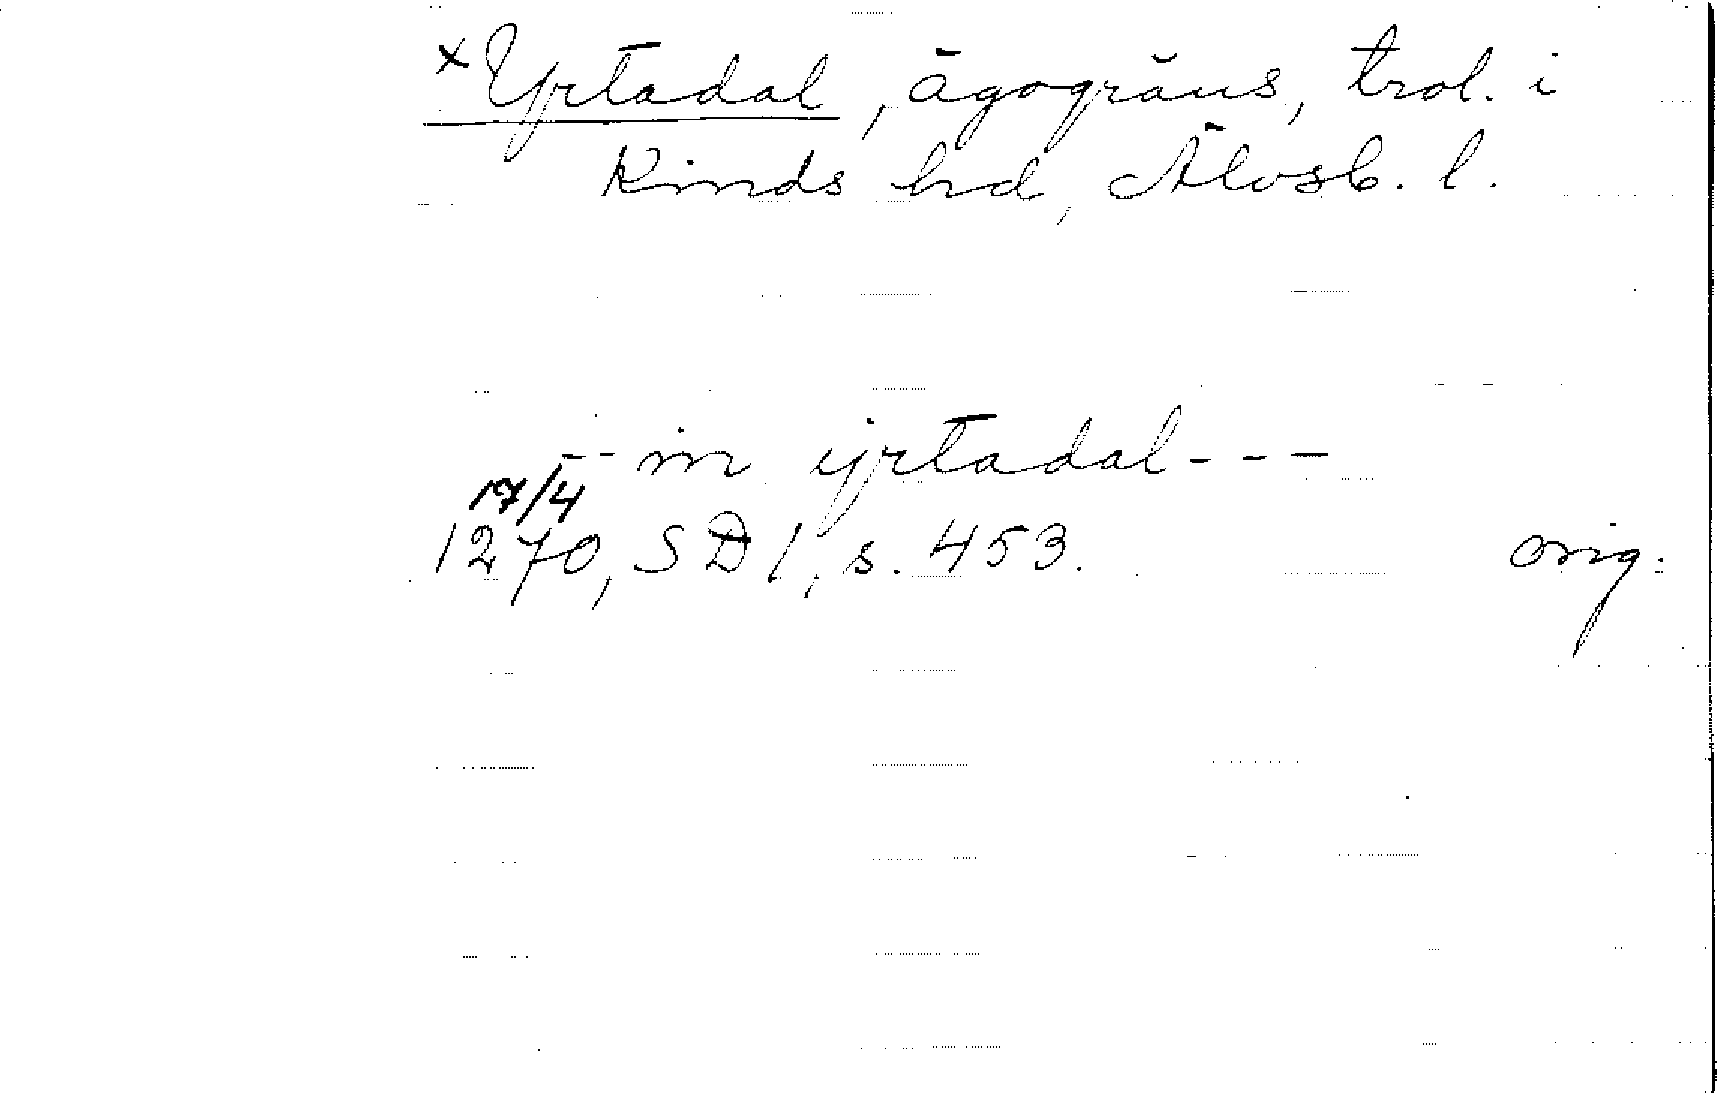 × Yrtadal, ägogräns, trol. i
Kinds hd, Älvsb. l.
-- in yrtadal ---
17/4
1270, SD 1, s. 453. orig.